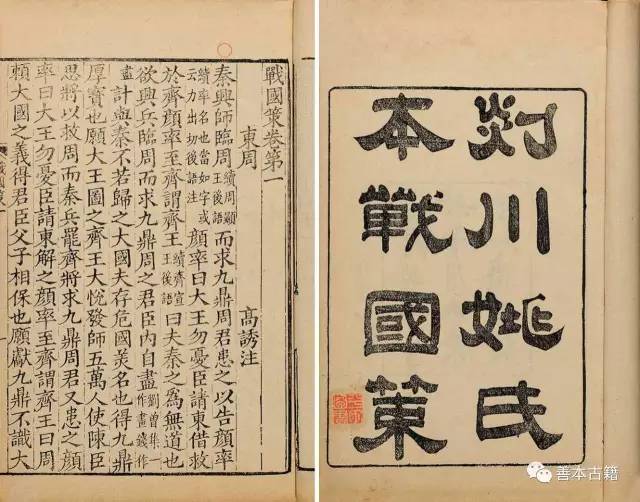 剡川姚氏
本戰國策
戰國策卷第一
東周
高誘注
秦興師臨周續周顯王後語而求九鼎周君患之以告顏率
續率名也當如字或云力出切後語注顏率曰大王勿憂臣請東借救
於齊顏率至齊謂齊王續齊宣王後語曰夫秦之為無道也
欲興兵臨周而求九鼎周之君臣內自盡劉曾集一作畫錢作
盡計與秦不若歸之大國夫存危國美名也得九鼎
厚寶也願大王圖之齊王大悅發師五萬人使陳臣
思將以救周而秦兵罷齊將求九鼎周君又患之顏
率曰大王勿憂臣請東解之顏率至齊謂齊王曰周
賴大國之義得君臣父子相保也願獻九鼎不識大
善本古籍